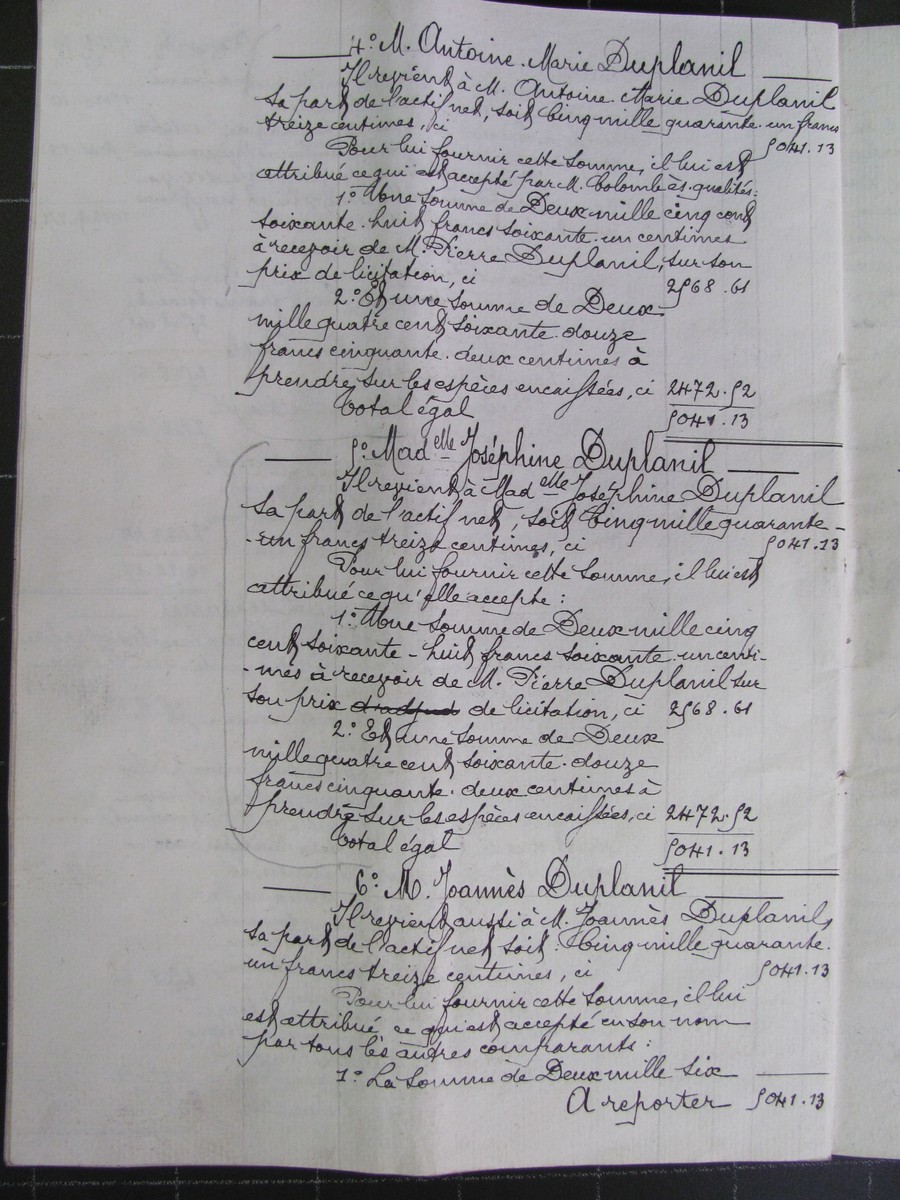 4° M. Antoine Marie Duplanil
Il revient à M. Antoine Marie Duplanil
sa part de l'actif net, soit Cinq mille quarante-un francs
treize centimes, ci 5041.13
Pour lui fournir cette somme, il lui est
attribué ce qui est accepté par M. Colomb ès-qualités:
1° Une somme de Deux mille cinq cent
soixante-huit francs soixante-un centimes
à recevoir de M. Pierre Duplanil, sur son
prix de licitation, ci 2568.61
2° Et une somme de Deux
mille quatre cent soixante-douze
francs cinquante-deux centimes à
prendre sur les espèces encaissées, ci 2472.52
Total égal 5041.13
5° Mad elle Joséphine Duplanil
Il revient à Mad elle Joséphine Duplanil
sa part de l'actif net, soit Cinq mille quarante-
-un francs treize centimes, ci 5041.13
Pour lui fournir cette somme, il lui est
attribué ce qu'elle accepte:
1° Une somme de Deux mille cinq
cent soixante-huit francs soixante-un centi-
-mes à recevoir de M. Pierre Duplanil sur
son prix d'adjud de licitation, ci 2568.61
2° Et une somme de Deux
mille quatre cent soixante-douze
francs cinquante-deux centimes à
prendre sur les espèces encaissées, ci 2472.52
Total égal 5041.13
6° M. Joannès Duplanil
Il revient aussi à M. Joannès Duplanil,
sa part de l'actif net soit: Cinq mille quarante-
un francs treize centimes, ci 5041.13
Pour lui fournir cette somme, il lui
est attribué ce qui est accepté en son nom
par tous les autres comparants:
1° La somme de Deux mille six
A reporter 5041.13